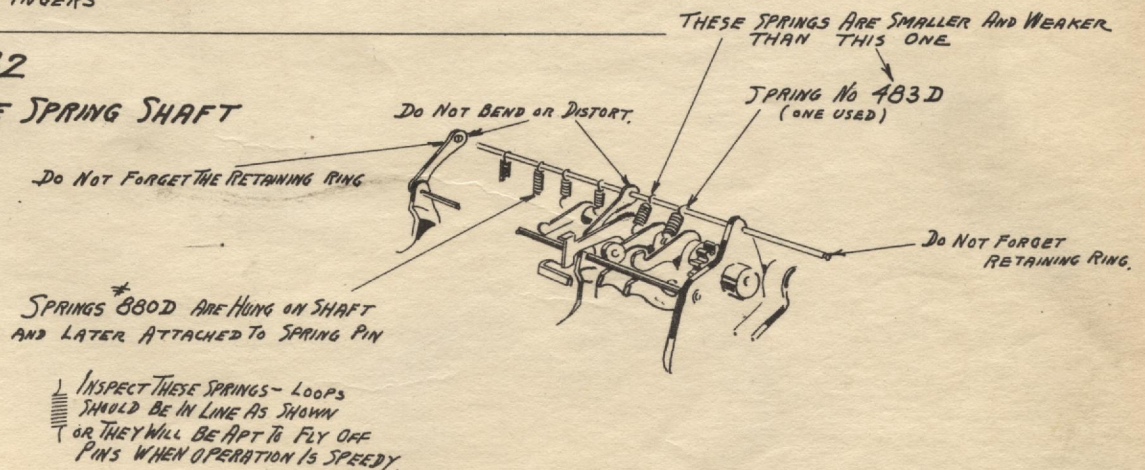 THESE SPRINGS ARE SMALLER AND WEAKER
THAN THIS ONE
2
SPRING SHAFT
DO NOT BEND OR DISTORT.
SPRING NO 483D
(ONE USED)
DO NOT FORGET THE RETAINING RING
DO NOT FORGET
RETAINING RING.
SPRINGS #880D ARE HUNG ON SHAFT
AND LATER ATTACHED TO SPRING PIN
INSPECT THESE SPRINGS - LOOPS
SHOULD BE IN LINE AS SHOWN
OR THEY WILL BE APT TO FLY OFF
PINS WHEN OPERATION IS SPEEDY